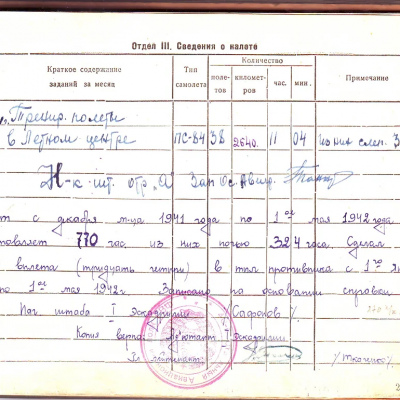 Отдел III. Сведения о налоте
Краткое содержание заданий за месяц
Тип самолета
Количество
поле-тов
километ-ров
час.
мин.
Примечание
„Тренир. полеты
в Летном центре ПС-84 38 2640. 11 04 из них слеп. 3
Н-к шт. отр. „А"
с декабря м-ца 1941 года по 1ое мая 1942 года
770 час из них ночью 324 часа. Сделал
вылета (тридцать четыри) в тыл противника с 1го
по 1ое мая 1942 г. Записано на основании справки
Нач штаба I эскадрилии /Сафонов/.
Копия верна: Ад'ютант I эскадрилии
Мл. лейтенант: /Ткаченко/.